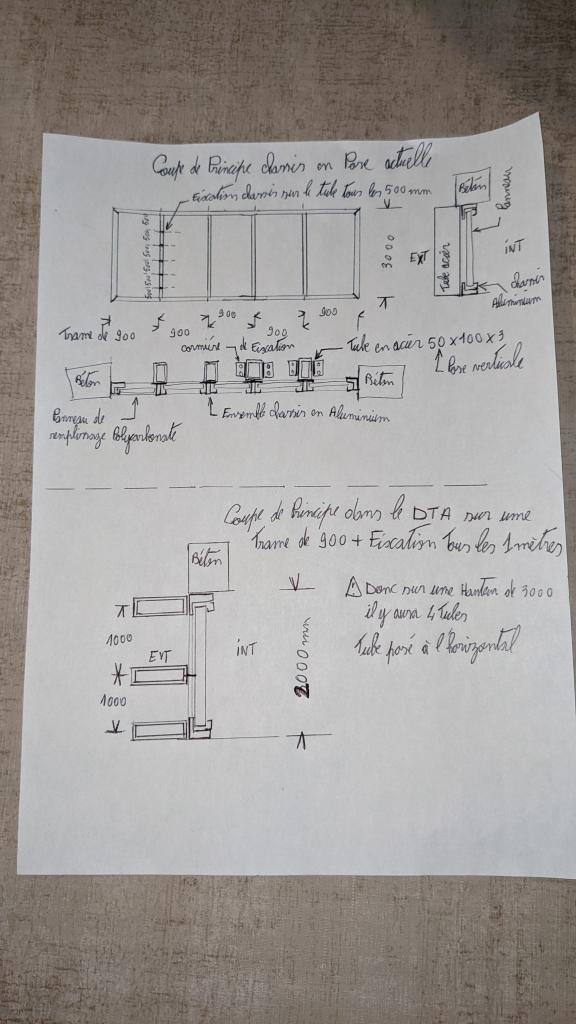 Coupe de Principe chassis en Pose actuelle
Fixation chassis sur le tube tous les 500 mm
Béton
Panneau
500 500 500 500 500
3000
EXT
Tube acier
iNT
chassis
Aluminium
Trame de 900
900
900
900
900
cornière de Fixation
Tube en acier 50 x 100 x 3
Pose verticale
Béton
Béton
Panneau de
remplissage Polycarbonate
Ensemble chassis en Aluminium
Coupe de Principe dans le DTA sur une
Trame de 900 + Fixation Tous les 1 mètres
Béton
Donc sur une Hauteur de 3000
il y aura 4 Tubes
Tube posé à l'horizontal
1000
EXT
iNT
2000 mm
1000